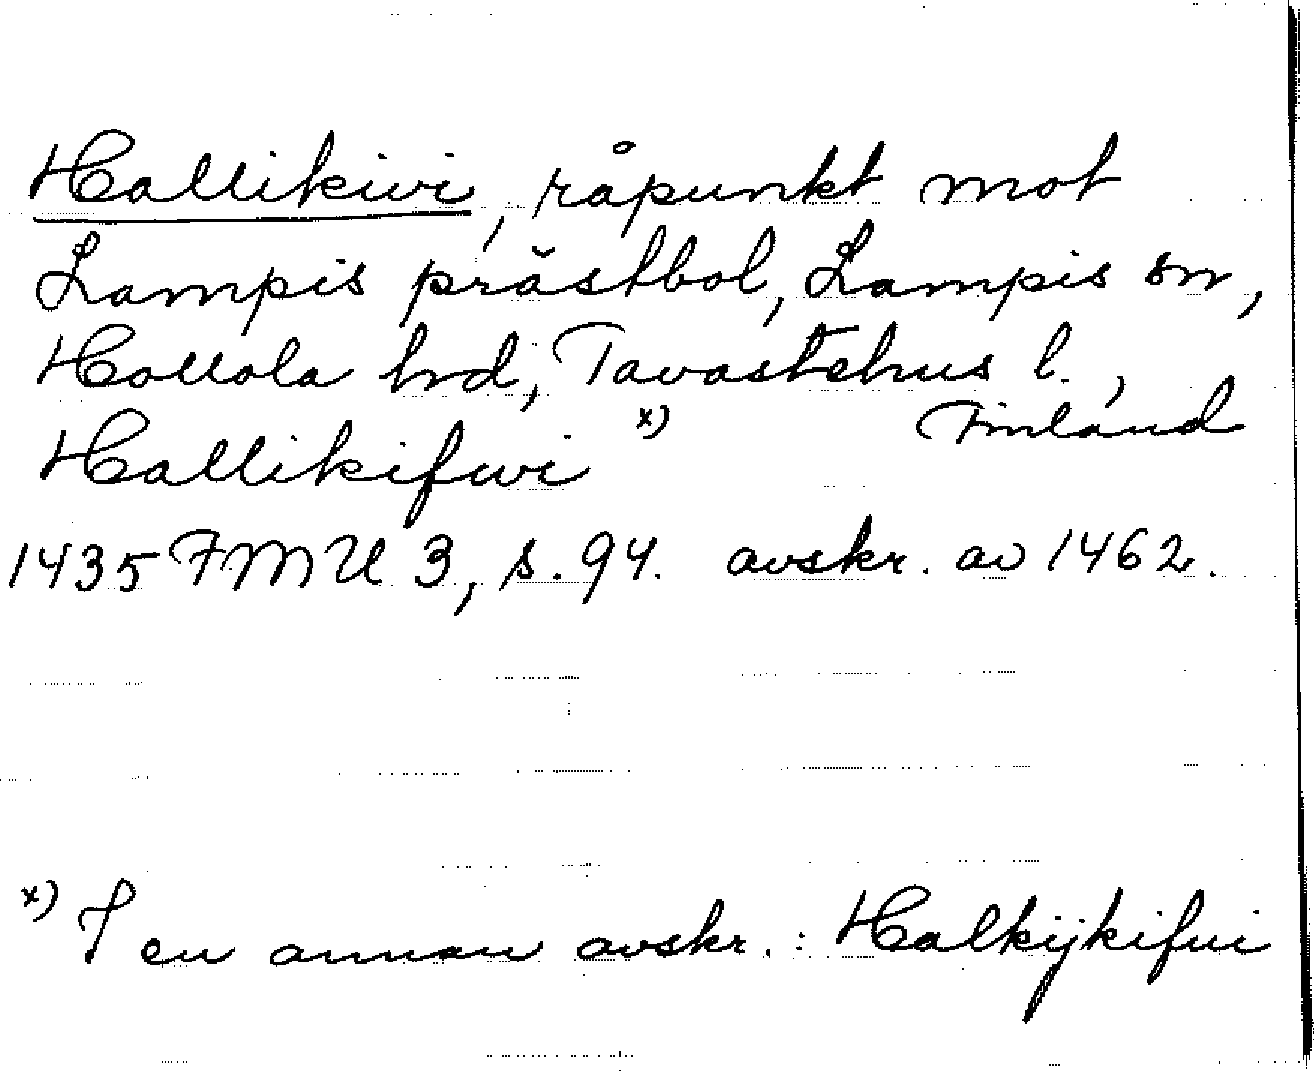 Hallikivi, råpunkt mot
Lampis prästbol, Lampis sn,
Hollola hrd, Tavastehus l.,
Finland
Hallikifwi x)
1435 FMU 3, s. 94. avskr. av 1462.
x) I en annan avskr.: Halkijkifwi